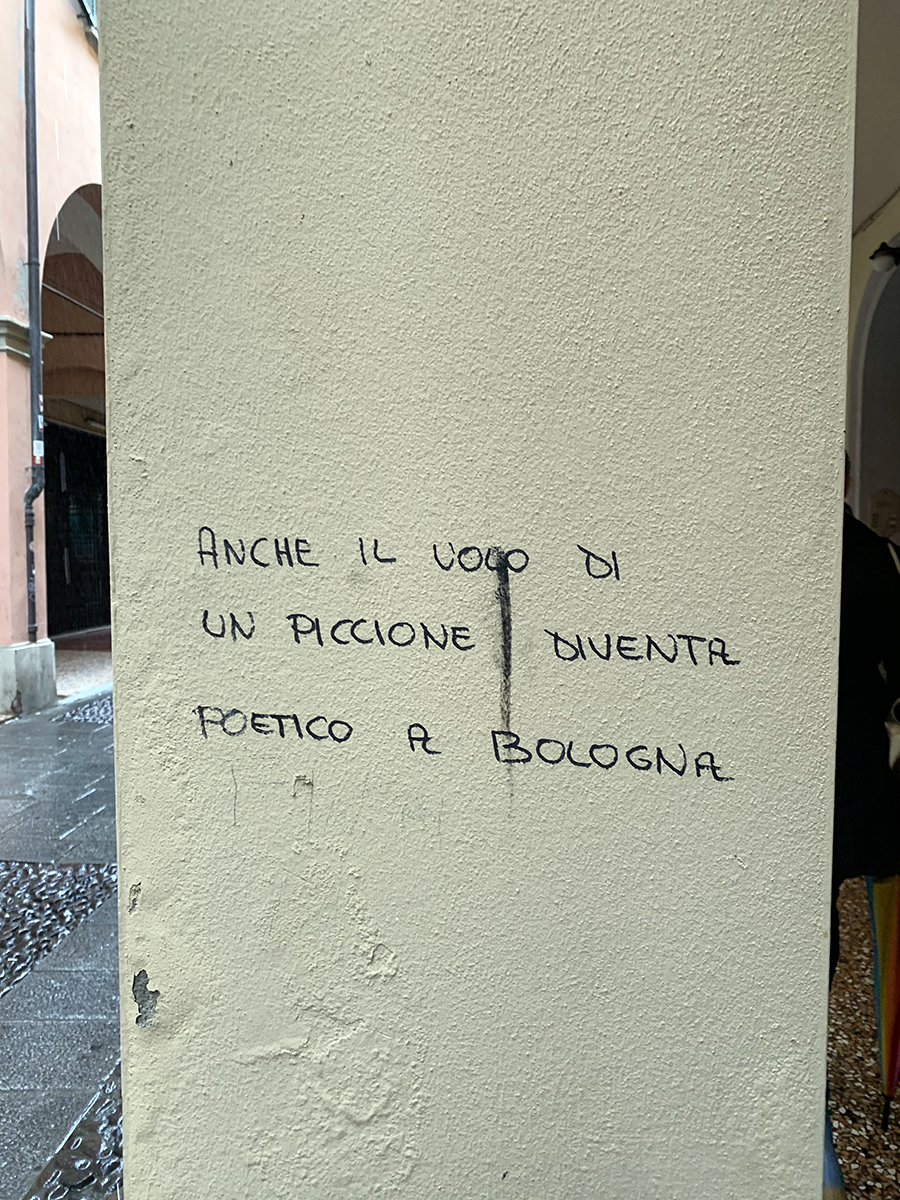 ANCHE IL VOLO DI
UN PICCIONE DIVENTA
POETICO A BOLOGNA